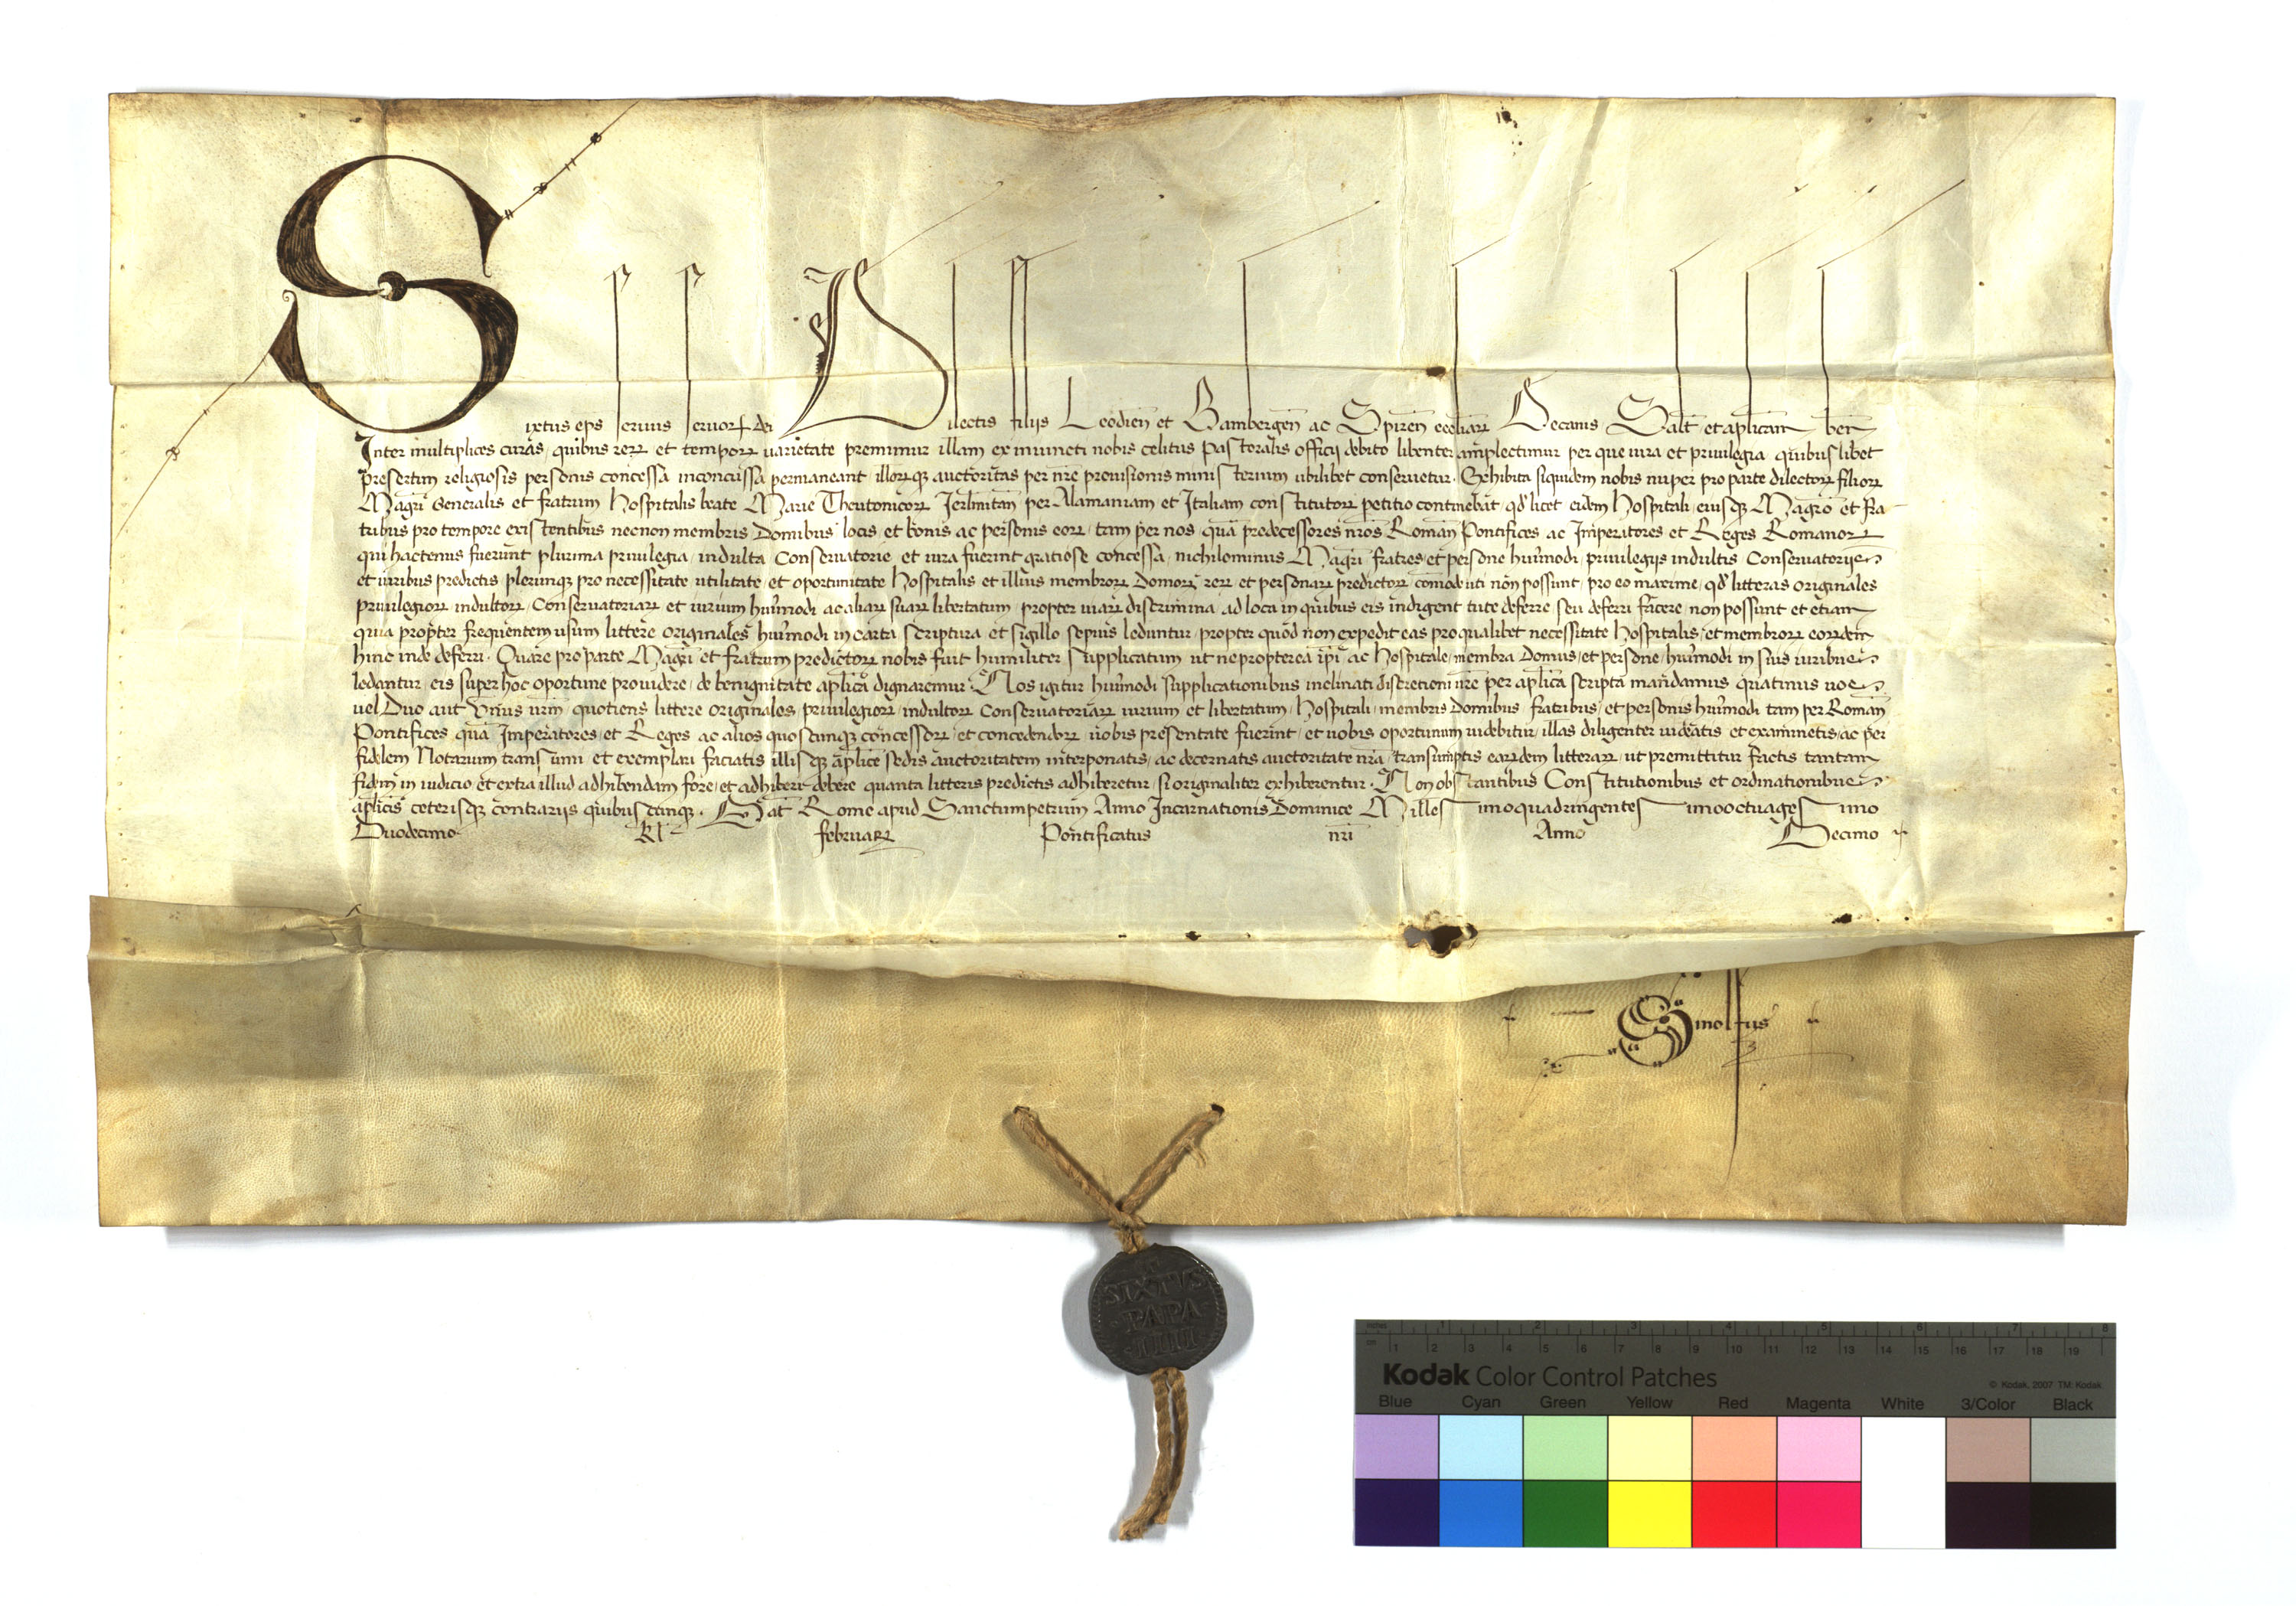 Sixtus eps servus servorꝝ dei Dilectis filijs Leodien̄ et Bambergen̄ ac Spiren̄ eccliarꝝ Decanis Salt̄ et aplicam ben̄
Inter multiplices curas, quibus rerꝝ et temporꝝ varietate premimur illam ex iniuncti nobis celitus pastoralis officij debito libenter amplectimur per que iura et privilegia quibuslibet
presertim religiosis personis concessa inconcussa permaneant illorꝝqꝫ auctoritas per nr̄e provisionis ministerium ubilibet conservetur. Exhibita siquidem nobis nuper pro parte dilectorꝝ filiorꝝ
Magrī Generalis et fratrum Hospitalis beate Marie Theutonicorꝝ Jerlimitan̄ per Alamaniam et Italiam constitutorꝝ petitio continebat qd̄ licet eidem Hospitali eiusqꝫ Magrō et fra-
tribus pro tempore existentibus necnon membris Domibus locis et bonis ac personis eorꝝ tam per nos quā predecessores nr̄os Roman̄ Pontifices ac Imperatores et Reges Romanorꝝ
qui hactenus fuerunt plurima privilegia indulta Conservatorie et iura fuerint gratiose concessa, nichilominus Magrī fratres et persone huiūmodi privilegijs indultis Conservatorijs
et iuribus predictis plerunqꝫ pro necessitate utilitate et oportunitate Hospitalis et illius membrorꝝ Domorꝝ rerꝝ et personarꝝ predictorꝝ com̄ode uti non possunt, pro eo maxime qd̄ litteras originales
privilegiorꝝ indultorꝝ Conservatoriarꝝ et iurium huiūmodi ac aliarꝝ suarꝝ libertatum propter viarꝝ discrimina ad loca in quibus eis indigent tute deferre seu deferri facere non possunt et etiam
quia propter frequentem usum littere originales huiūmodi in carta scriptura et sigillo sepius leduntur propter quod non expedit eas pro qualibet necessitate Hospitalis et membrorꝝ eorꝝdem
hinc inde deferri. Quare pro parte Magrī et fratrum predictorꝝ nobis fuit humiliter supplicatum ut ne propterea ip̄i ac Hospitale membra Domus et persone huiūmodi in suis iuribus
ledantur eis super hoc oportune providere de benignitate aplica dignaremur. Nos igitur huiūmodi supplicationibus inclinati discretioni vr̄e per aplica scripta mandamus quatinus vos
vel Duo aut Unus vrm̄ quotiens littere originales privilegiorꝝ indultorꝝ Conservatoriarꝝ iurium et libertatum Hospitali membris Domibus fratribus et personis huiūmodi tam per Roman̄
Pontifices quā Imperatores et Reges ac alios quoscunqꝫ concessorꝝ et concedendorꝝ vobis presentate fuerint et vobis oportunum videbitur illas diligenter videatis et examinetis ac per
fidelem Notarium transumi et exemplari faciatis illisqꝫ aplice sedis auctoritatem interponatis ac decernatis auctoritate nr̄a transumptis earꝝdem litterarꝝ ut premittitur factis tantam
fidem in iudicio et extra illud adhibendam fore et adhiberi debere quanta litteris predictis adhiberetur si originaliter exhiberentur. Non obstantibus Constitutionibus et ordinationibus
aplicis ceterisqꝫ contrarijs quibuscunqꝫ. Dat̄ Rome apud Sanctumpetrum Anno Incarnationis Dominice Millesimoquadringentesimooctuagesimo
Duodecimo Kl̄ februarꝝ Pontificatus nr̄i Anno Decimo
Sinolfus
SIXTUS
PAPA
IIII
inches 1 2 3 4 5 6 7 8
cm 1 2 3 4 5 6 7 8 9 10 11 12 13 14 15 16 17 18 19
Kodak Color Control Patches
© Kodak, 2007 TM: Kodak
Blue Cyan Green Yellow Red Magenta White 3/Color Black